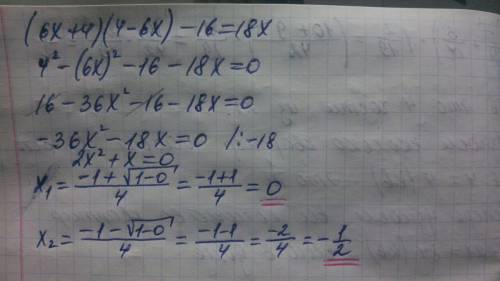 (6x+4)(4-6x)-16=18x
4²-(6x)²-16-18x=0
16-36x²-16-18x=0
-36x²-18x=0 /:-18
2x²+x=0
x₁=(-1+√(1-0))/4=(-1+1)/4=0
x₂=(-1-√(1-0))/4=(-1-1)/4=-2/4=-1/2